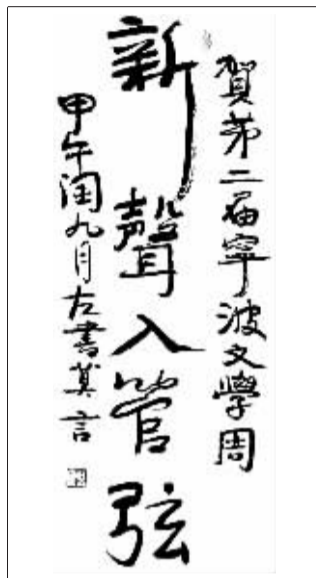 賀第二届寧波文學周
新聲入管弦
甲午閏九月左書莫言